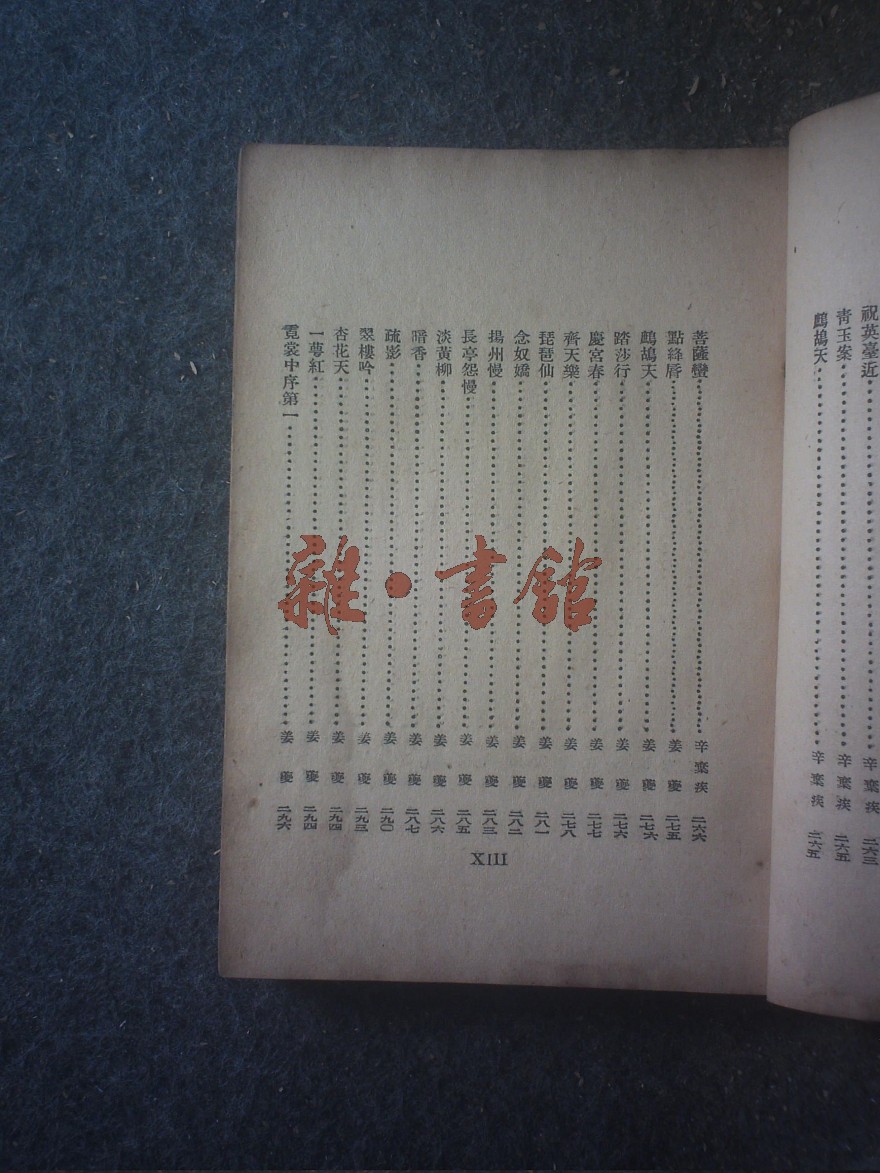 祝英臺近 辛棄疾 二六三
青玉案 辛棄疾 二六五
鷓鴣天 辛棄疾 二六五
菩薩蠻 辛棄疾 二六六
點絳唇 姜夔 二七五
鷓鴣天 姜夔 二七六
踏莎行 姜夔 二七六
慶宮春 姜夔 二七七
齊天樂 姜夔 二七八
琵琶仙 姜夔 二八一
念奴嬌 姜夔 二八二
揚州慢 姜夔 二八三
長亭怨慢 姜夔 二八五
淡黃柳 姜夔 二八六
暗香 姜夔 二八七
疏影 姜夔 二九〇
翠樓吟 姜夔 二九三
杏花天 姜夔 二九四
一萼紅 姜夔 二九四
霓裳中序第一 姜夔 二九六
XIII
雜·書館